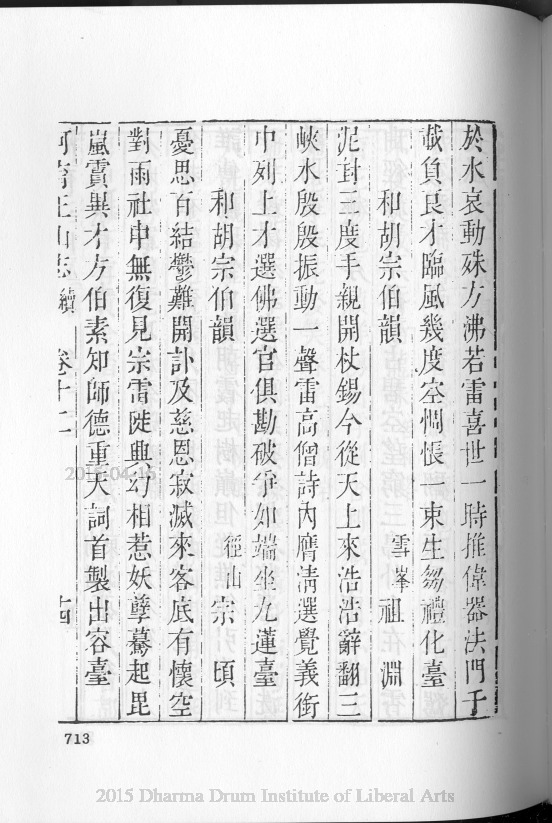 於水哀動殊方沸若雷喜世一時推偉器法門千
載負良才臨風幾度空惆悵一束生芻禮化臺
和胡宗伯韻　雪峯祖淵
泥封三度手親開杖錫今從天上來浩浩辭翻三
峽水殷殷振動一聲雷高僧詩內膺清選覺義銜
中列上才選佛選官俱勘破爭如端坐九蓮臺
和胡宗伯韻　徑山宗頃
憂思百結鬱難開訃及慈恩寂滅來客底有懷空
對雨社中無復見宗雷陡興幻相惹妖孽驀起毘
嵐賈異才方伯素知師德重天詞首製出容臺
阿育王山志 續 卷十二 十四
713
2015-04-16
2015 Dharma Drum Institute of Liberal Arts